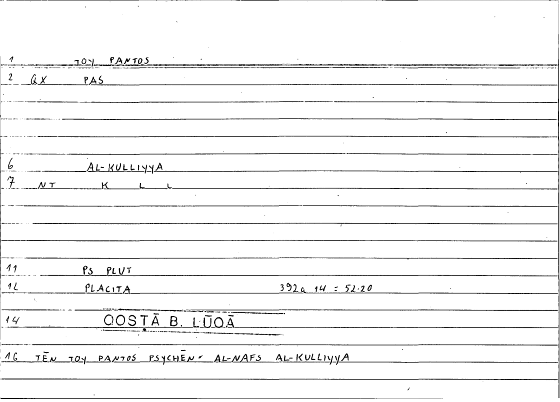 1 TOY PANTOS
2 QX PAS
6 AL-KULLIYYA
7 NT K L L
11 PS PLUT
12 PLACITA 392a 14 = 52.20
14 QOSṬĀ B. LŪQĀ
16 TĒN TOY PANTOS PSYCHĒN' AL-NAFS AL-KULLIYYA